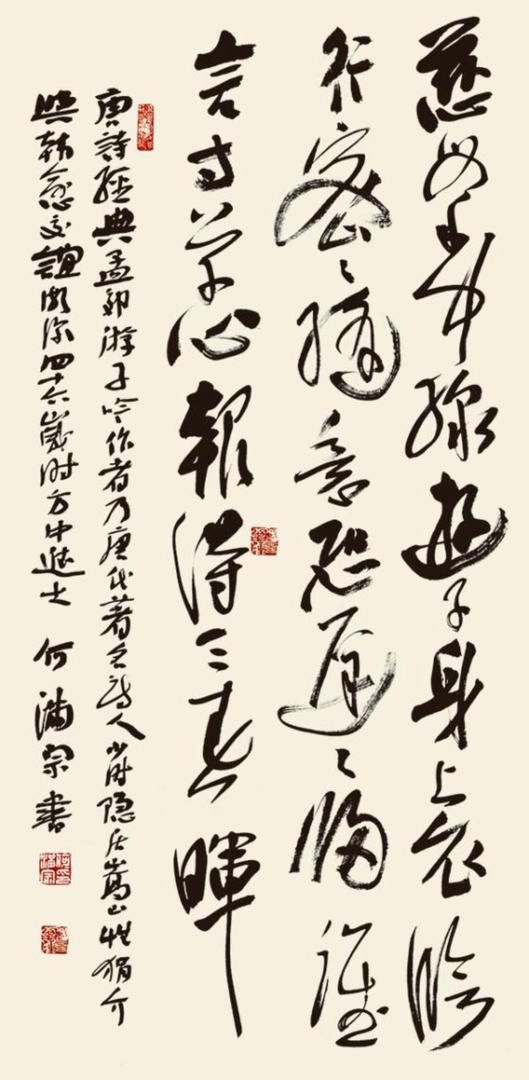 慈母手中線遊子身上衣臨
行密〻縫意恐遲〻歸誰
言寸草心報得三春暉
唐詩經典孟郊游子吟作者乃唐代著名詩人少时隐居嵩山性狷介
與韩愈交誼頗深四十六歲时方中進士 何滿宗書